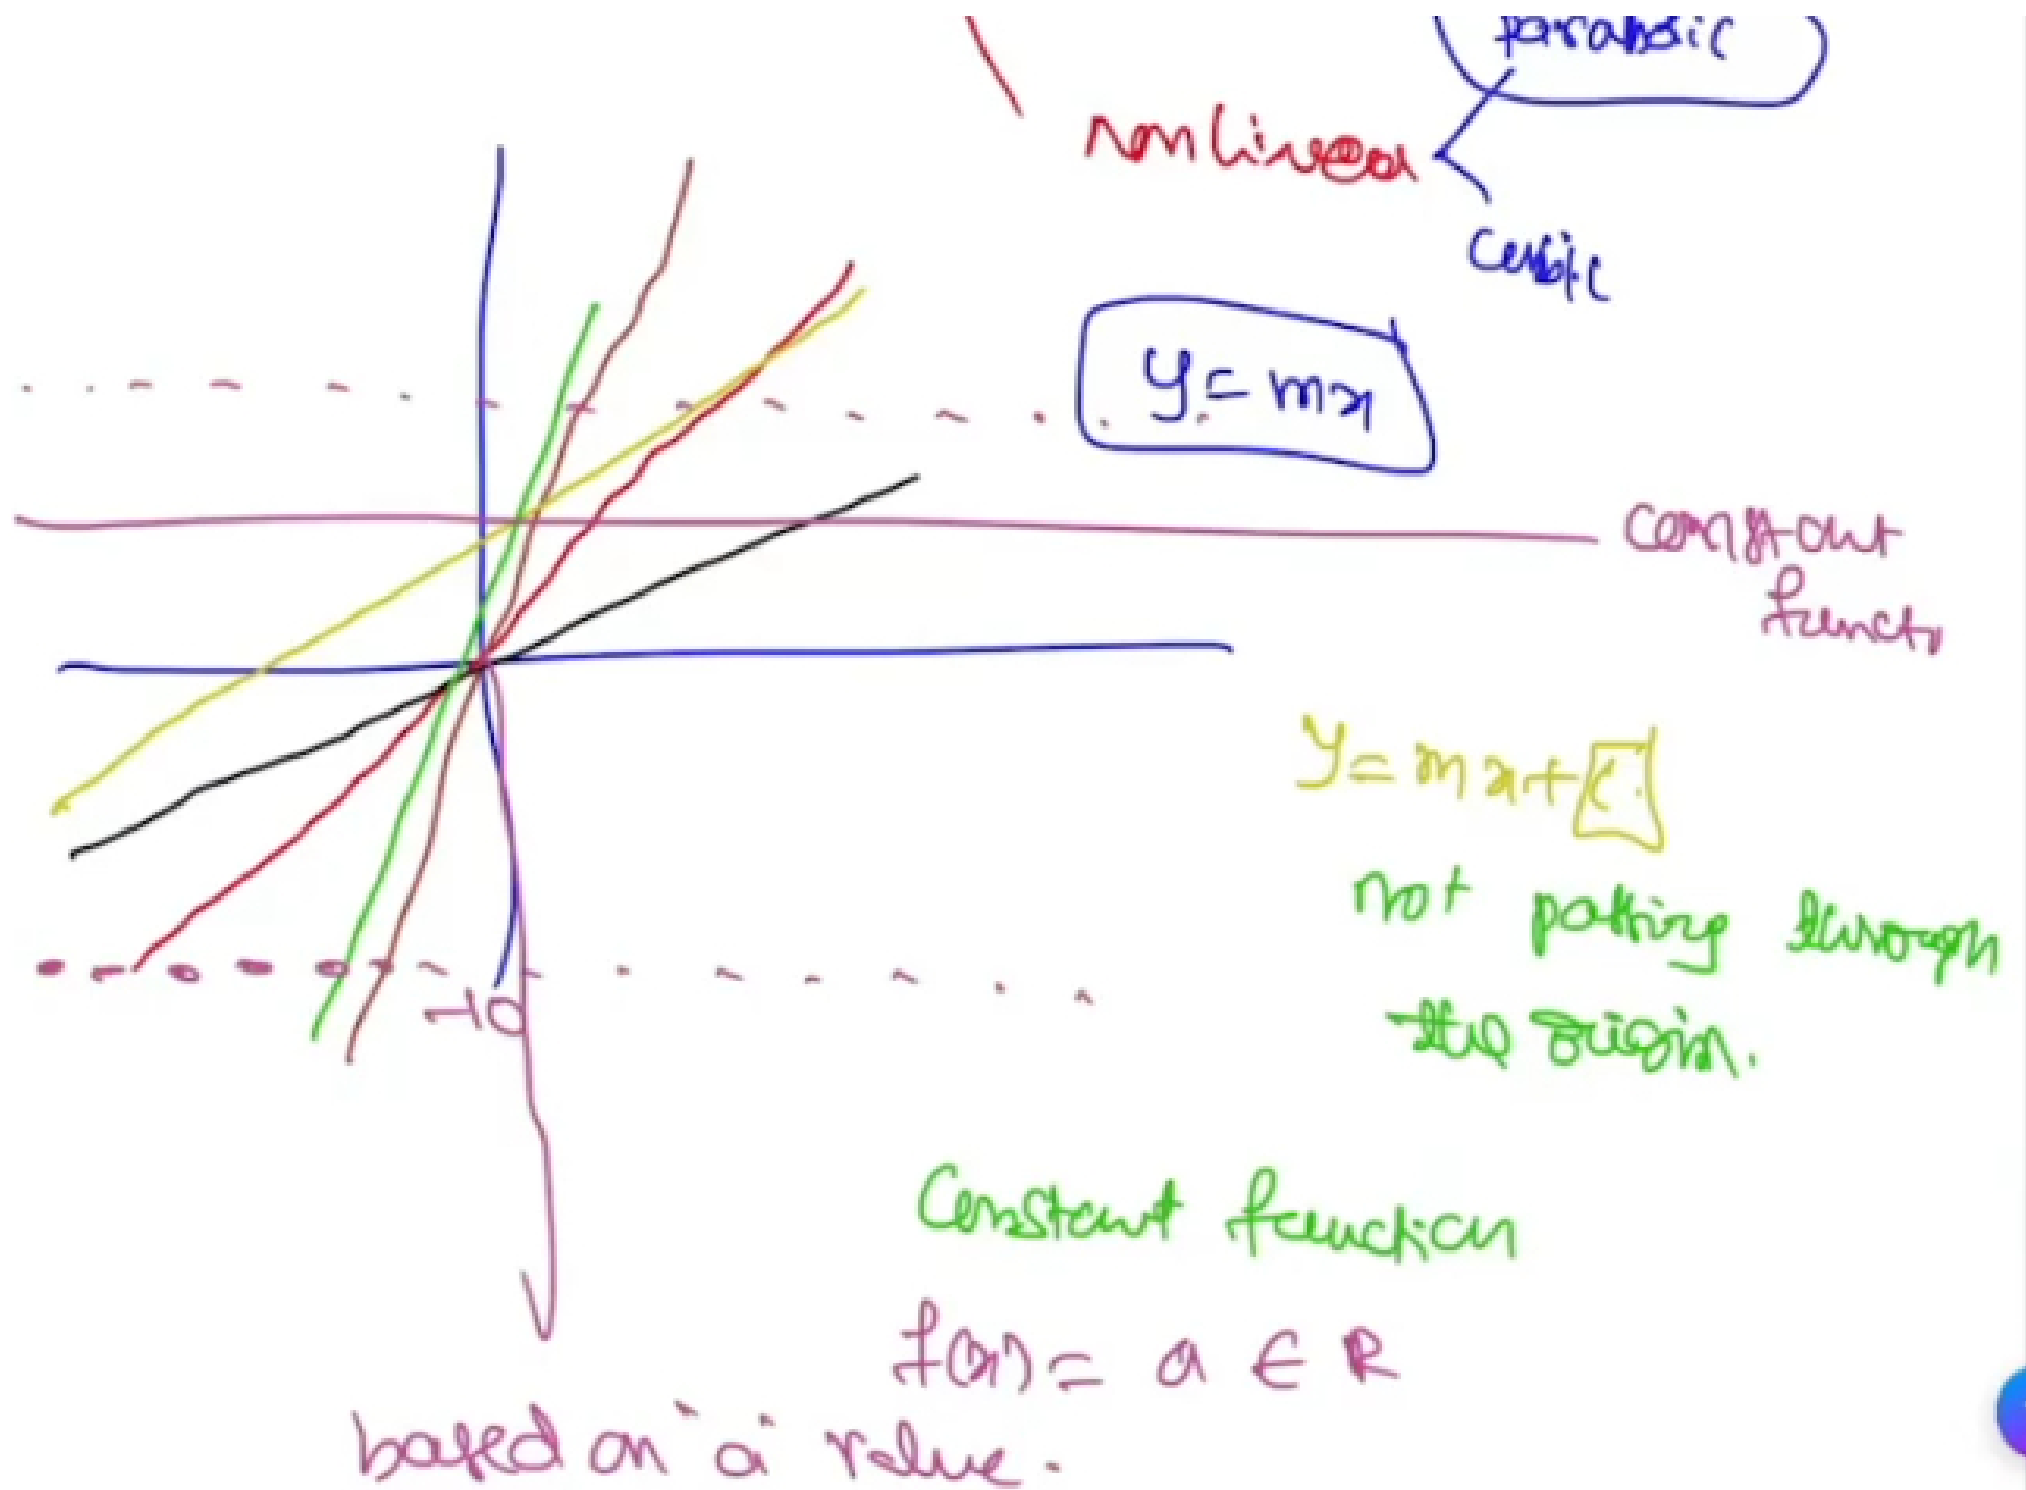 parabolic
nonlinear
cubic
y = mx
constant
functi
y = mx + c
not passing through
the origin.
-10
Constant function
f(x) = a ∈ R
based on "a" value.